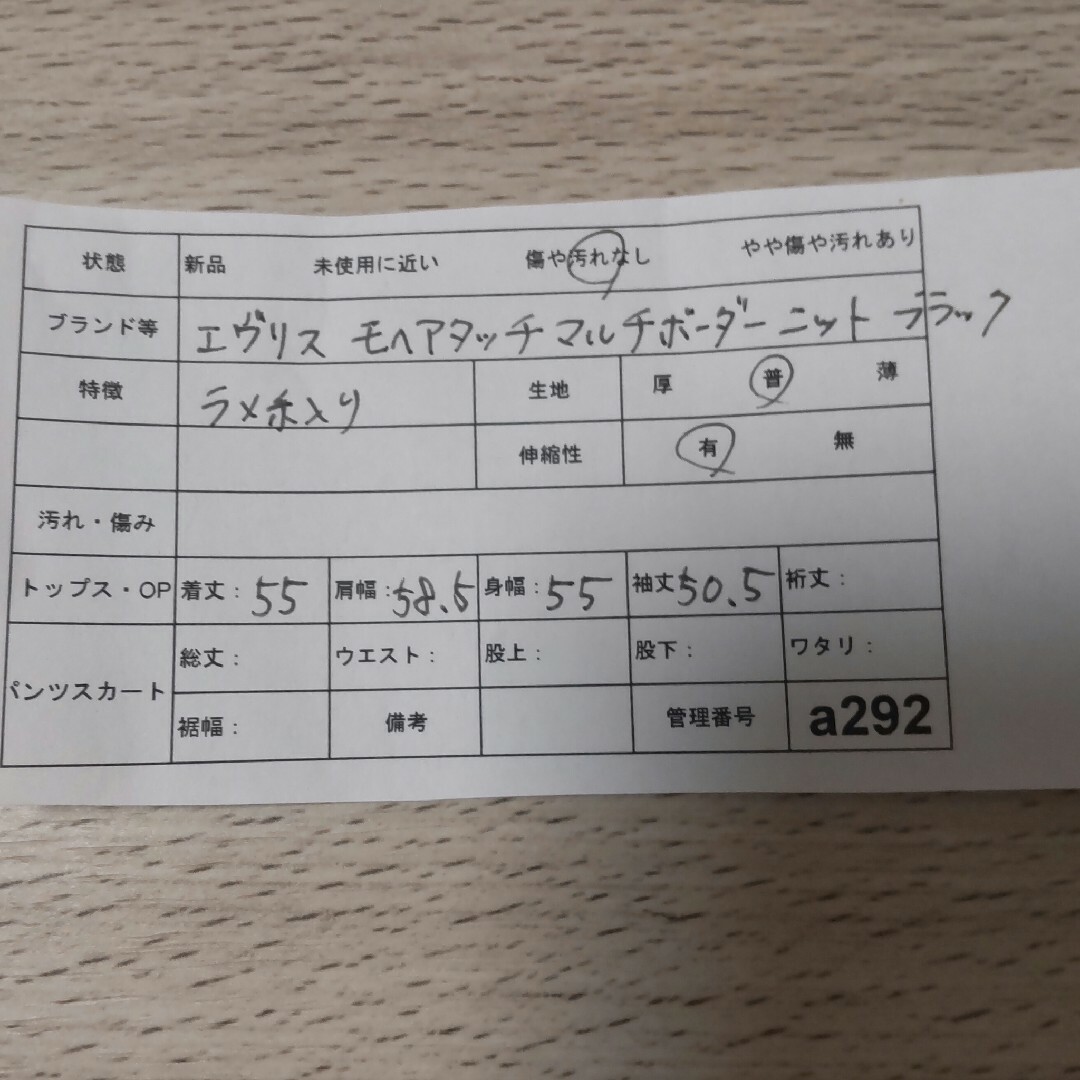 状態 新品 未使用に近い 傷や汚れなし やや傷や汚れあり
ブランド等 エヴリス モヘアタッチマルチボーダーニット ブラック
特徴 ラメ糸入り 生地 厚 普 薄
伸縮性 有 無
汚れ・傷み
トップス・OP 着丈：55 肩幅：58.5 身幅：55 袖丈50.5 裄丈：
パンツスカート 総丈： ウエスト： 股上： 股下： ワタリ：
裾幅： 備考 管理番号 a292